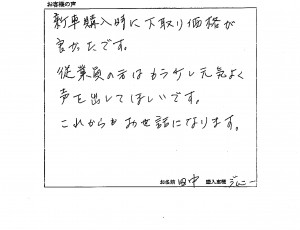 お客様の声
新車購入時に下取り価格が
良かったです。
従業員の方はもう少し元気よく
声を出してほしいです。
これからもお世話になります。
お名前 田中 購入車種